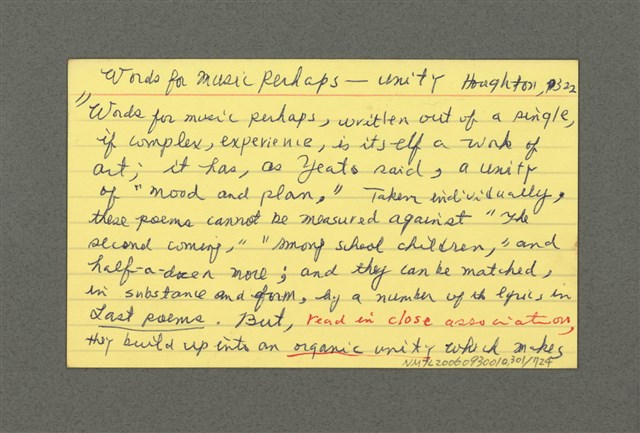 Words for music perhaps — unity Houghton, p322
"Words for music perhaps, written out of a single,
if complex, experience, is itself a work of
art; it has, as Yeats said, a unity
of "mood and plan." Taken individually,
these poems cannot be measured against "The
second coming," "Among school children," and
half-a-dozen more; and they can be matched,
in substance and form, by a number of the lyrics in
Last poems. But, read in close association,
they build up into an organic unity which makes
NMTL20060930010.301/724